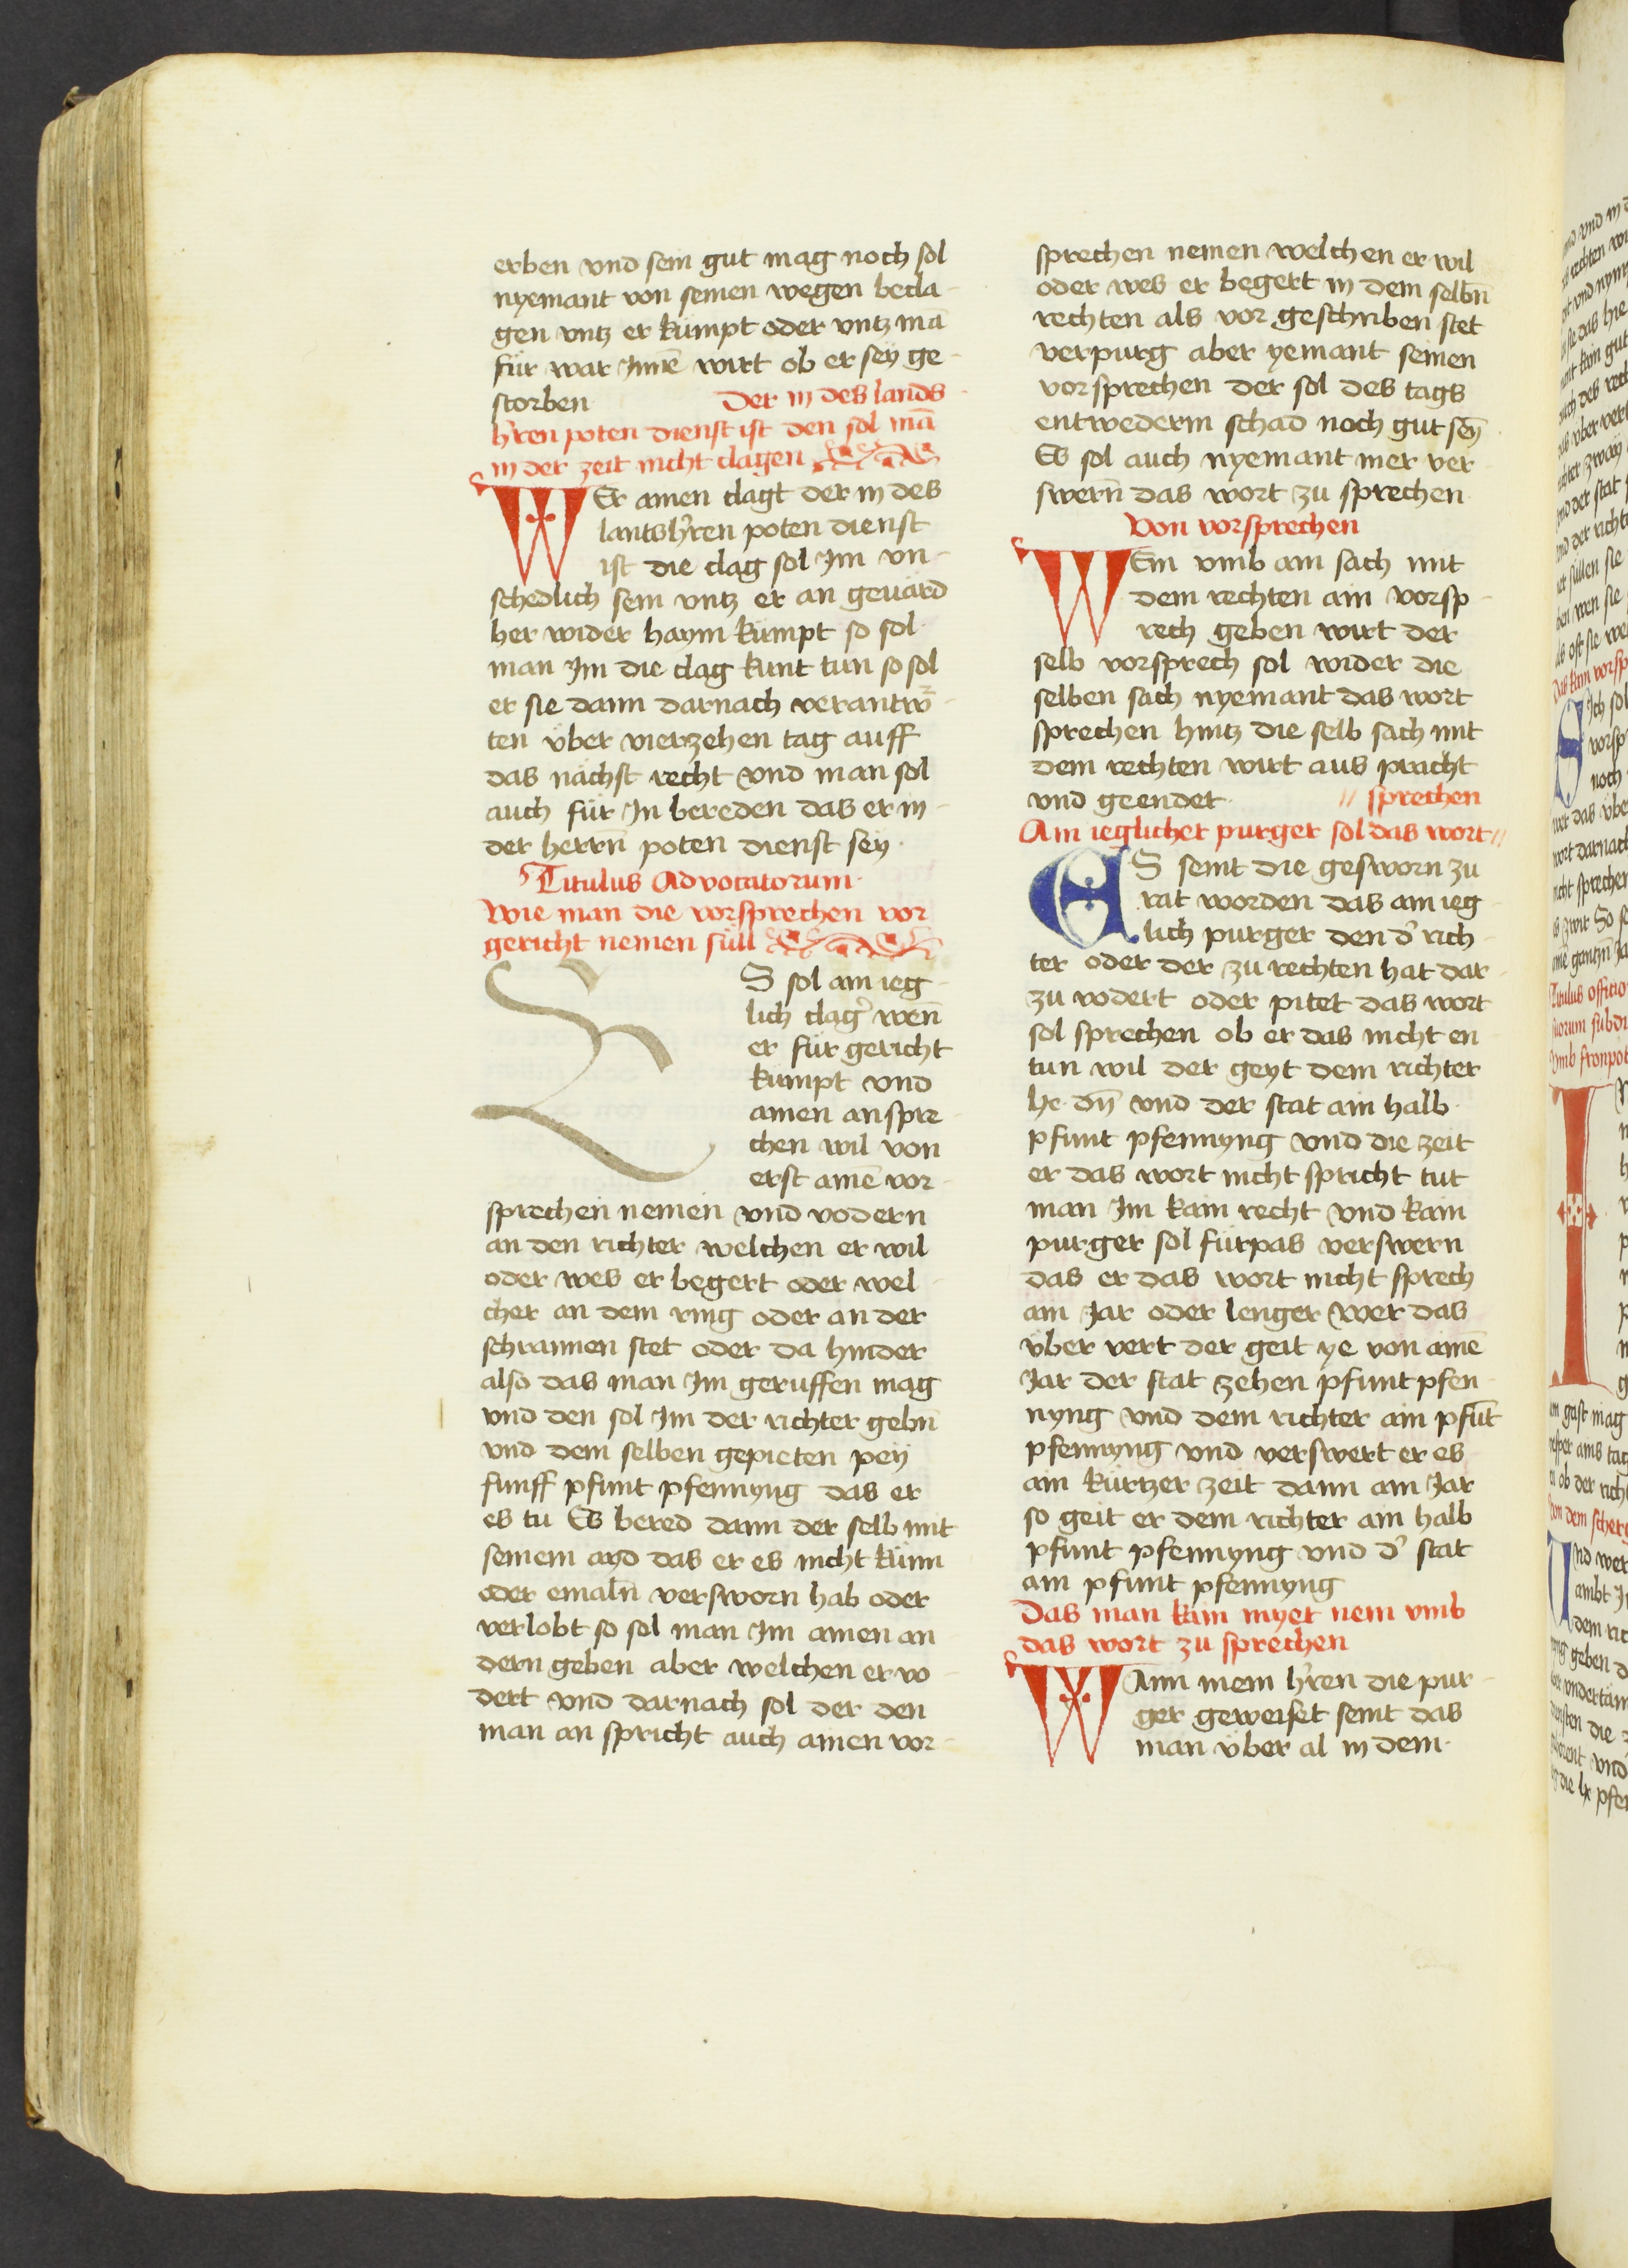 erben vnd sein gut mag noch sol
nyemant von seinen wegen becla-
gen vntz er kumpt oder vntz mā
für war Jnnē wirt ob er sey ge-
storben Der in des lands-
hʼren poten dienst ist den sol mā
in der zeit nicht clagen
WEr ainen clagt der in des
lantshʼren poten dienst
ist die clag sol Jm vn-
schedlich sein vntz er an geuärd
her wider haym kumpt so sol
man Jm die clag kunt tun so sol
er sie dann darnach verantw̄-
ten über vierzehen tag auff
das nächst recht vnd man sol
auch für Jn bereden das er in-
der herrn̄ poten dienst sey.
Titulus Advocatorum.
Wie man die vorsprechen vor
gericht nemen süll
ES sol ain ieg-
lich clagʼ wen̄
er für gericht
kumpt vnd
ainen anspre-
chen wil von
erst ainē vor-
sprechen nemen vnd vodern
an den richter welchen er wil
oder wes er begert oder wel-
cher an dem ring oder an der
schrannen stet oder da hinder
also das man Jm geruffen mag
vnd den sol Jm der richter gebn̄
vnd dem selben gepieten pey
funff pfunt pfennyng das er
es tu Es bered dann der selb mit
seinem ayd das er es nicht künn
oder emaln̄ versworn hab oder
verlobt so sol man Jm ainen an-
dern geben aber welchen er vo-
dert vnd darnach sol der den
man an spricht auch ainen vor-
sprechen nemen welchen er wil
oder wes er begert in dem selbn̄
rechten als vor geschriben stet
verpurg aber yemant seinen
vorsprechen der sol des tags
entwederm schad noch gut seȳ
Es sol auch nyemant mer ver-
swern̄ das wort zu sprechen
Von vorsprechen
WEm vmb ain sach mit
dem rechten ain vorsp-
rech geben wirt der
selb vorsprech sol wider die
selben sach nyemant das wort
sprechen hintz die selb sach mit
dem rechten wirt aus pracht
vnd geendet. // sprechen
Ain ieglicher purger sol das wort //
ES seint die gesworn zu
rat worden das ain ieg-
lich purger den dʼ rich-
ter oder der zu rechten hat dar-
zu vodert oder pitet das wort
sol sprechen ob er das nicht en
tun wil der geyt dem richter
lx. dn̄ vnd der stat ain halb.
pfunt pfennyng vnd die zeit
er das wort nicht spricht tut
man Jm kain recht vnd kain
purger sol fürpas verswern
das er das wort nicht sprech
ain Jar oder lenger Wer das
über vert der geit ye von ainē
Jar der stat zehen pfunt pfen-
nyng vnd dem richter ain pfūt
pfennyng vnd verswert er es
ain kürtzer zeit dann ain Jar
so geit er dem richter ain halb
pfunt pfennyng vnd dʼ stat
ain pfunt pfennyng
Das man kain myet nem vmb
das wort zu sprechen
WAnn mein hʼren die pur-
ger geweiset seint das
man über al in dem.